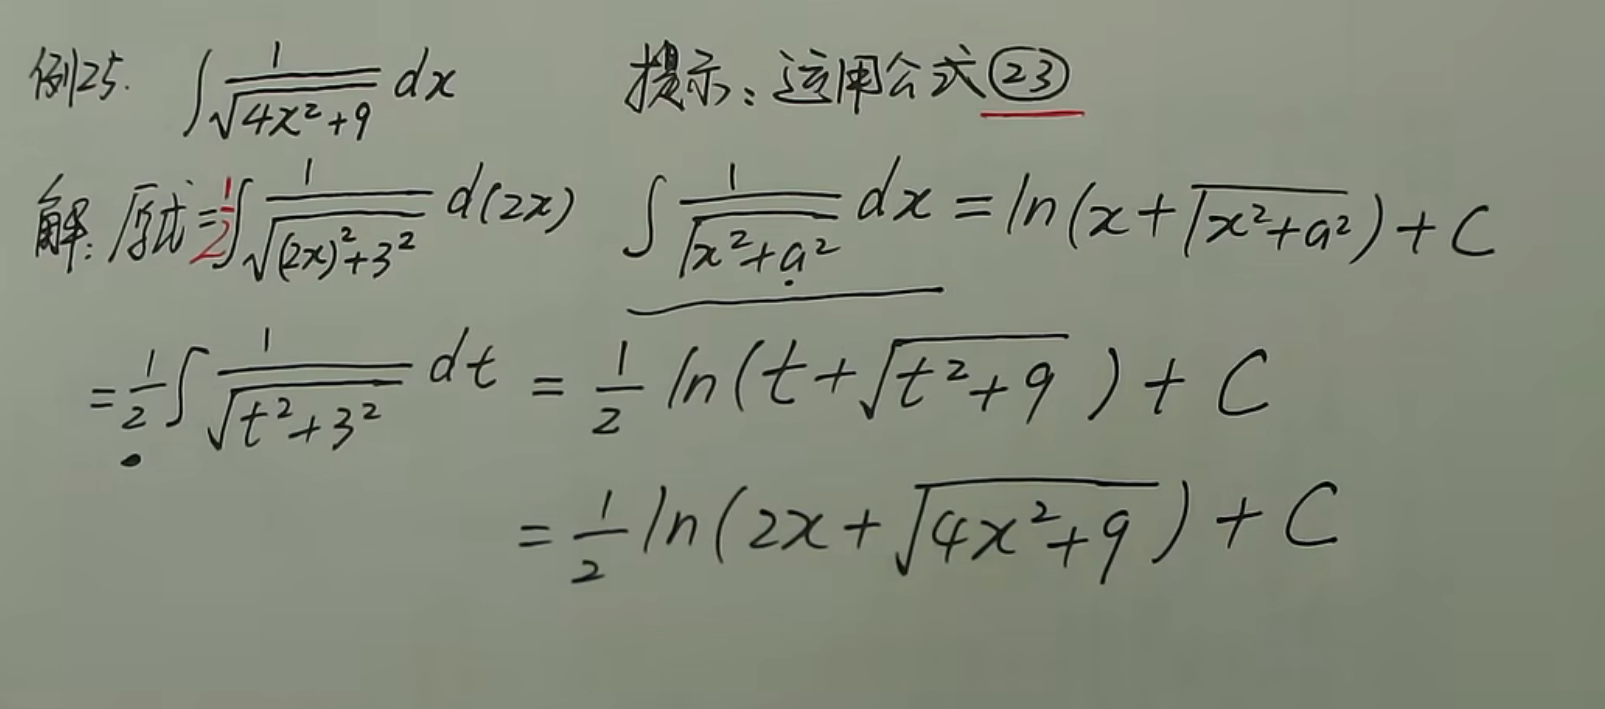 例25. ∫ 1/√(4x²+9) dx 提示：运用公式㉓
解：原式=1/2∫ 1/√((2x)²+3²) d(2x) ∫ 1/√(x²+a²) dx = ln(x+√(x²+a²))+C
=1/2∫ 1/√(t²+3²) dt = 1/2 ln(t+√(t²+9))+C
=1/2 ln(2x+√(4x²+9))+C